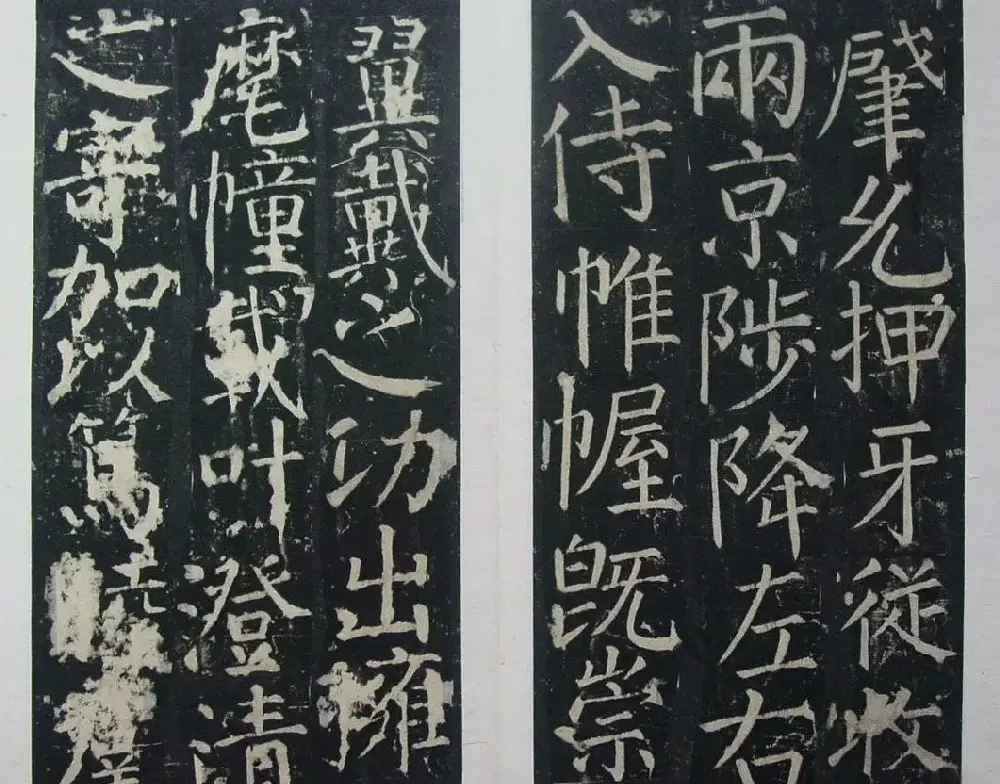 肇允押牙從收
兩京陟降左右
入侍帷幄既崇
翼戴之功出擁
麾幢載叶澄清
之寄加以篤